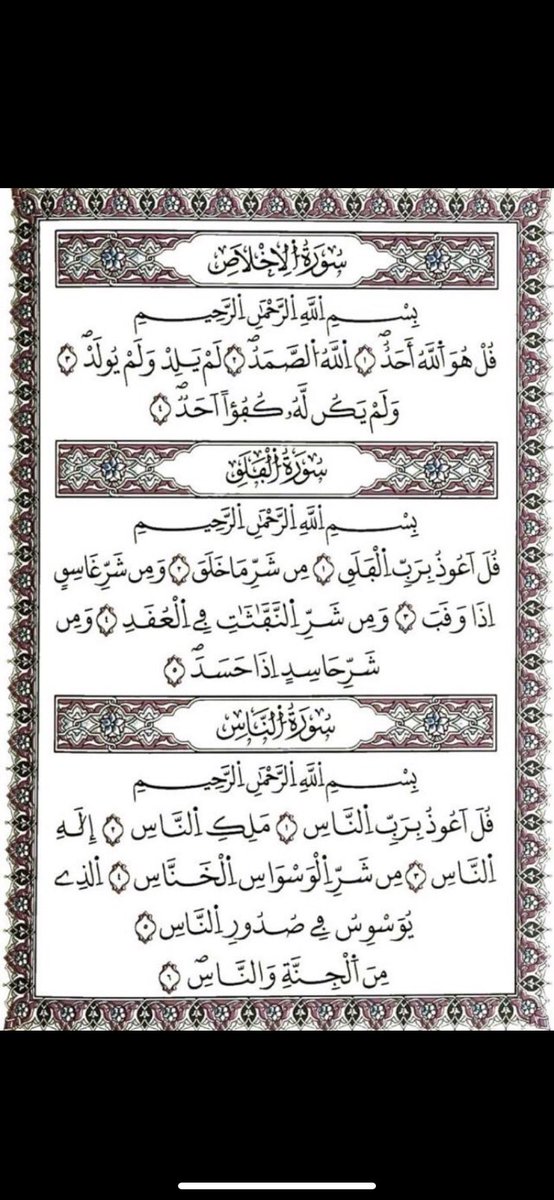 سُورَةُ الْاِخْلَاصِ
بِسْمِ اللَّهِ الرَّحْمَٰنِ الرَّحِيمِ
قُلْ هُوَ ٱللَّهُ أَحَدٌ ١ اللَّهُ الصَّمَدُ ٢ لَمْ يَلِدْ وَلَمْ يُولَدْ ٣
وَلَمْ يَكُن لَّهُۥ كُفُؤًا اَحَدٌ ٤
سُورَةُ الْفَلَقِ
بِسْمِ اللَّهِ الرَّحْمَٰنِ الرَّحِيمِ
قُلَ اَعُوذُ بِرَبِّ الْفَلَقِ ١ مِن شَرِّ مَا خَلَقَ ٢ وَمِن شَرِّ غَاسِقٍ
اِذَا وَقَبَ ٣ وَمِن شَرِّ النَّفَّٰثَٰتِ فِي الْعُقَدِ ٤ وَمِن
شَرِّ حَاسِدٍ اِذَا حَسَدَ ٥
سُورَةُ النَّاسِ
بِسْمِ اللَّهِ الرَّحْمَٰنِ الرَّحِيمِ
قُلَ اَعُوذُ بِرَبِّ النَّاسِ ١ مَلِكِ النَّاسِ ٢ إِلَٰهِ
النَّاسِ ٣ مِن شَرِّ الْوَسْوَاسِ الْخَنَّاسِ ٤ الَّذِي
يُوَسْوِسُ فِي صُدُورِ النَّاسِ ٥
مِنَ ٱلْجِنَّةِ وَالنَّاسِ ٦